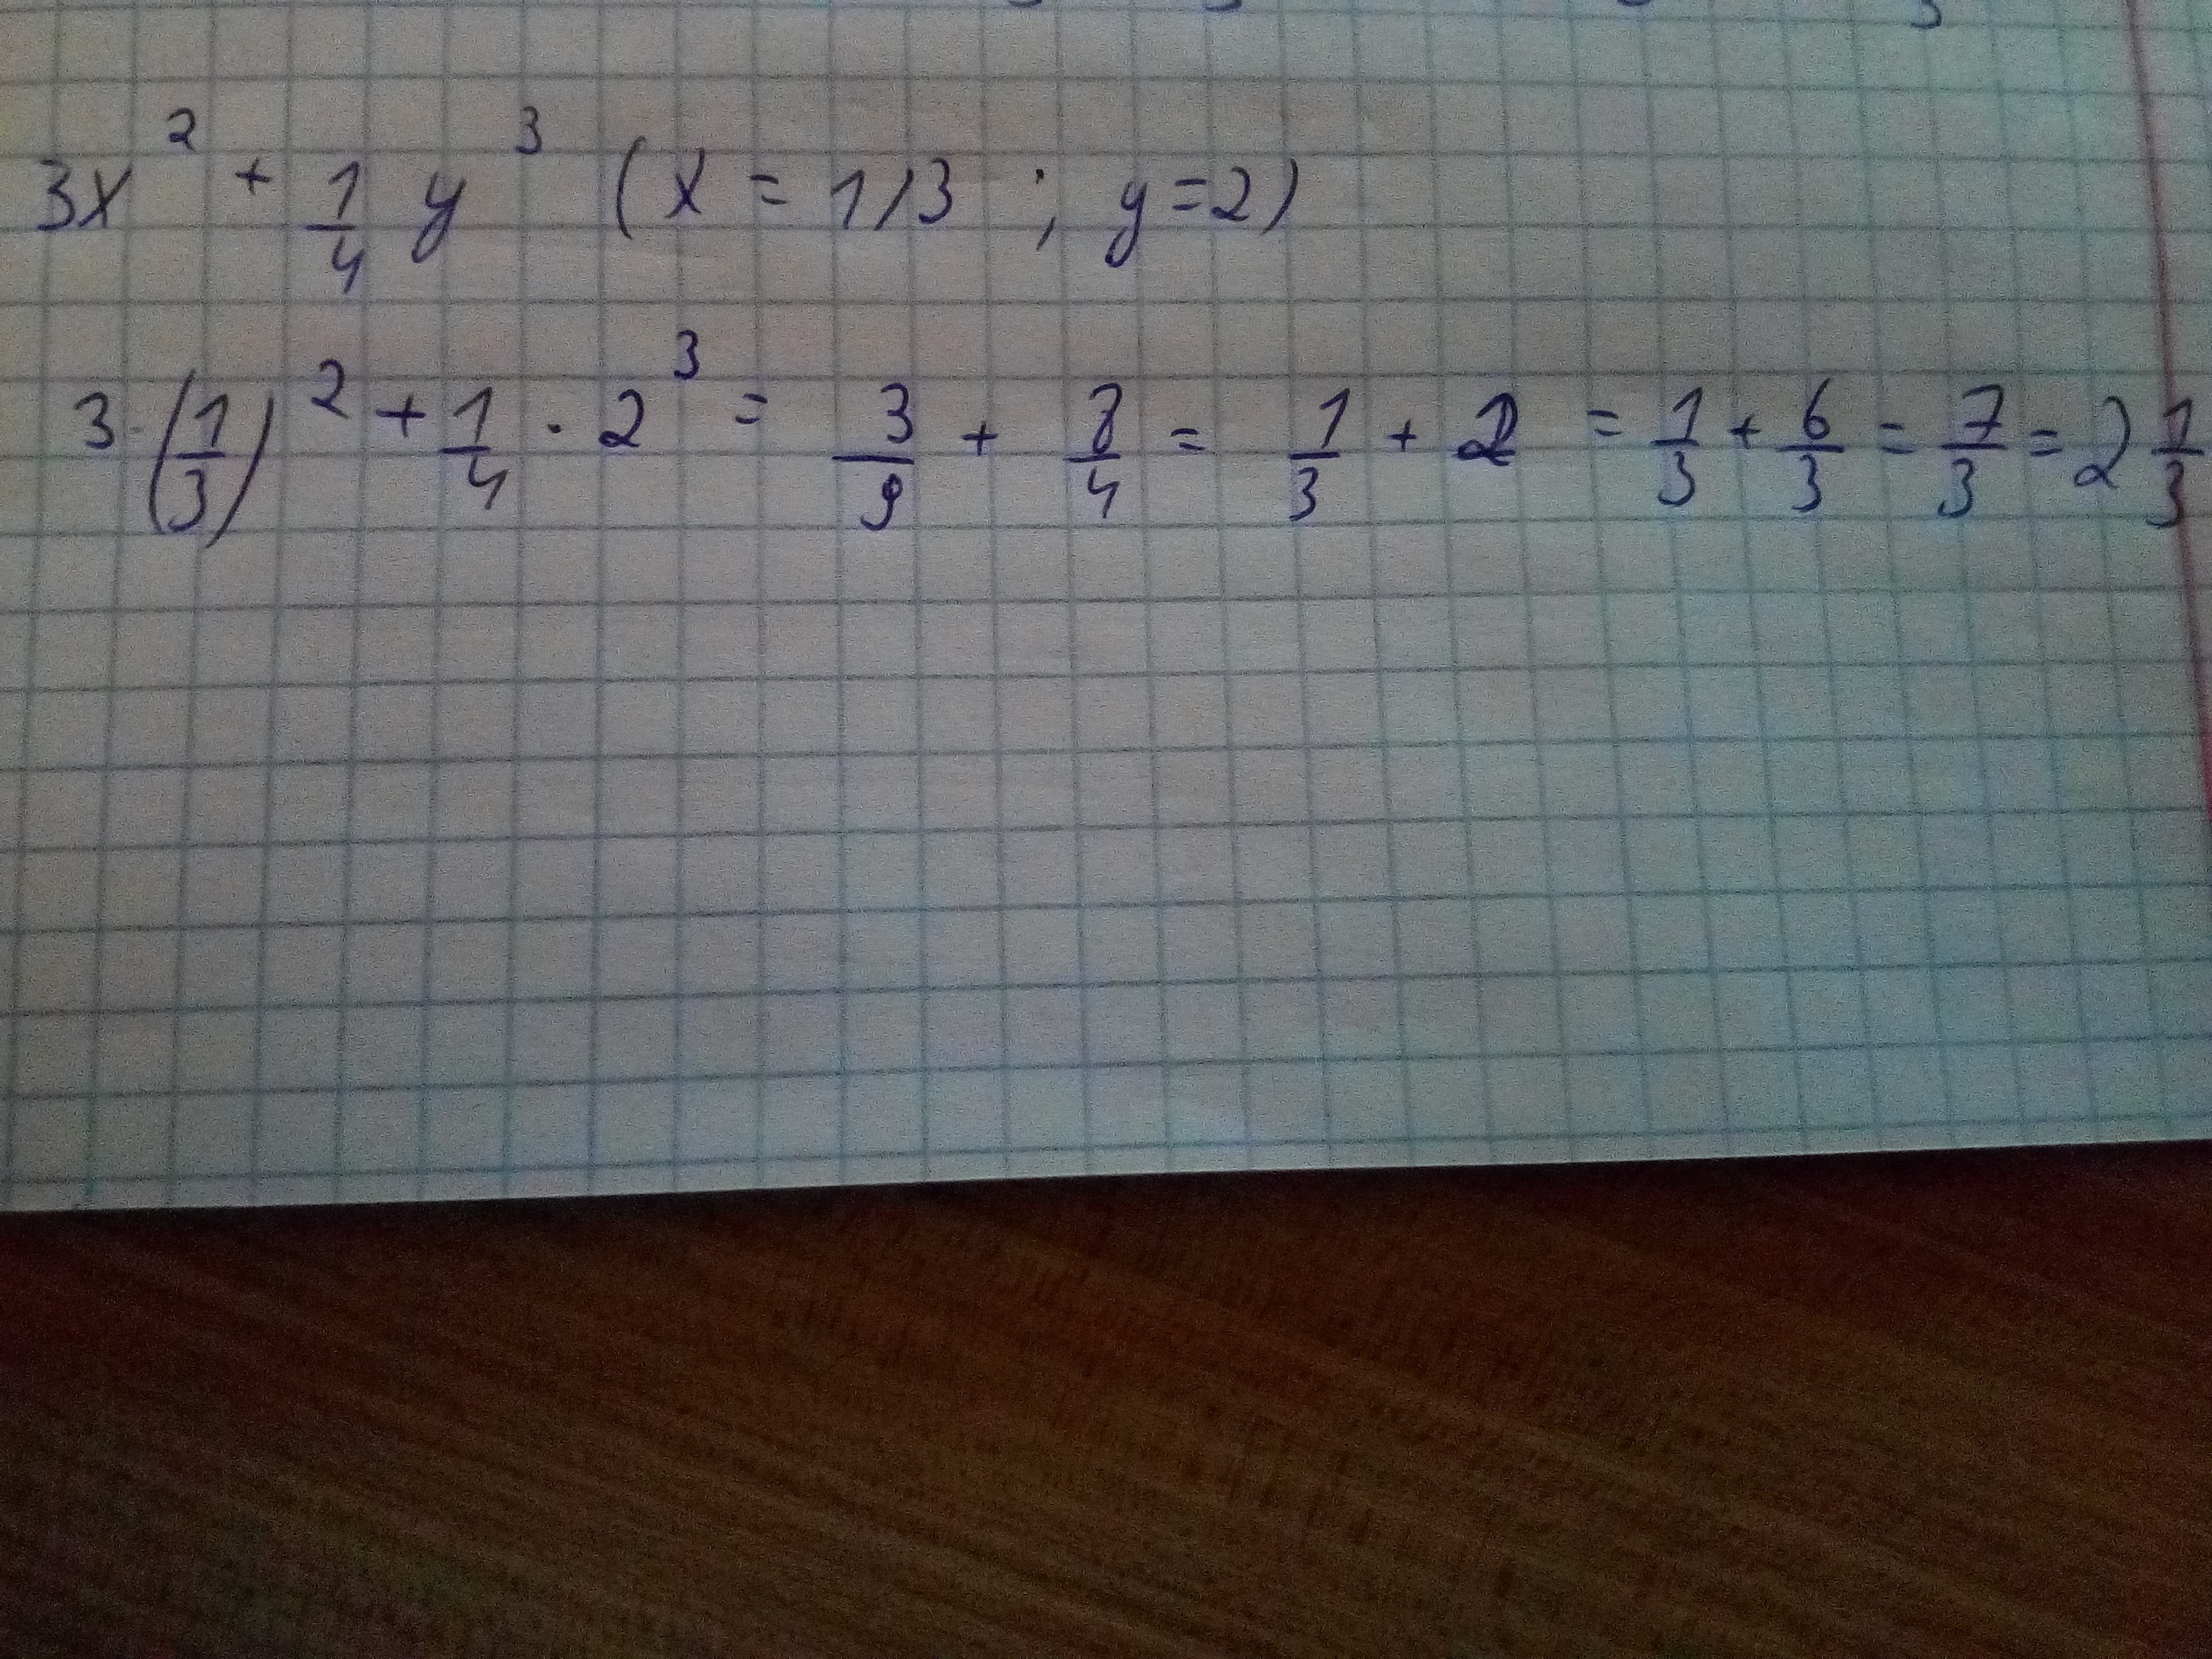 3x² + 1/4 y³ (x = 1/3 ; y=2)
3·(1/3)² + 1/4 · 2³ = 3/9 + 8/4 = 1/3 + 2 = 1/3 + 6/3 = 7/3 = 2 1/3